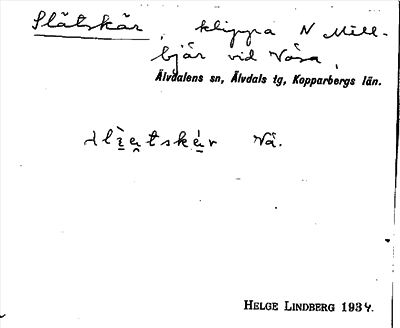 Slätskär, klippa N Mill-
bjär vid Våsa,
Älvdalens sn, Älvdals tg, Kopparbergs län.
Vå.
HELGE LINDBERG 1934.